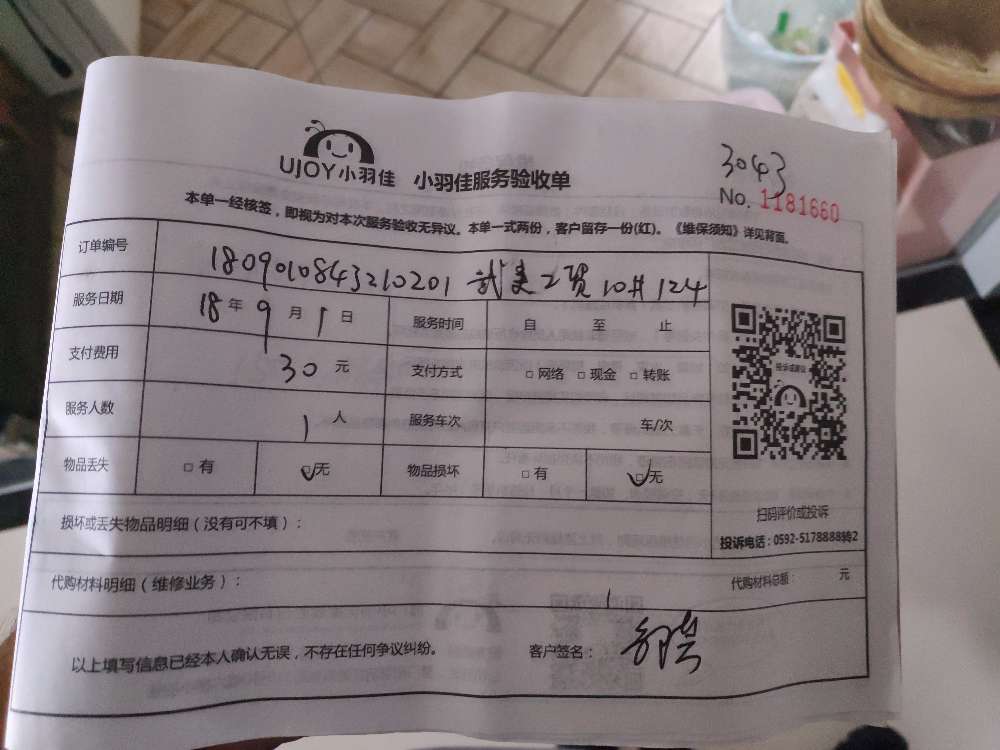 3043
UJOY小羽佳 小羽佳服务验收单
No. 1181660
本单一经核签，即视为对本次服务验收无异议。本单一式两份，客户留存一份(红)。《维保须知》详见背面。
订单编号 1809010843210201
服务日期 18 年 9 月 1 日 服务时间 自 至 止
支付费用 30 元 支付方式 □网络 □现金 □转账
服务人数 1 人 服务车次 车/次
物品丢失 □有 □无 物品损坏 □有 □无
扫码评价或投诉
投诉电话：0592-5178888转2
损坏或丢失物品明细（没有可不填）：
代购材料明细（维修业务）： 代购材料总额： 元
以上填写信息已经本人确认无误，不存在任何争议纠纷。 客户签名：